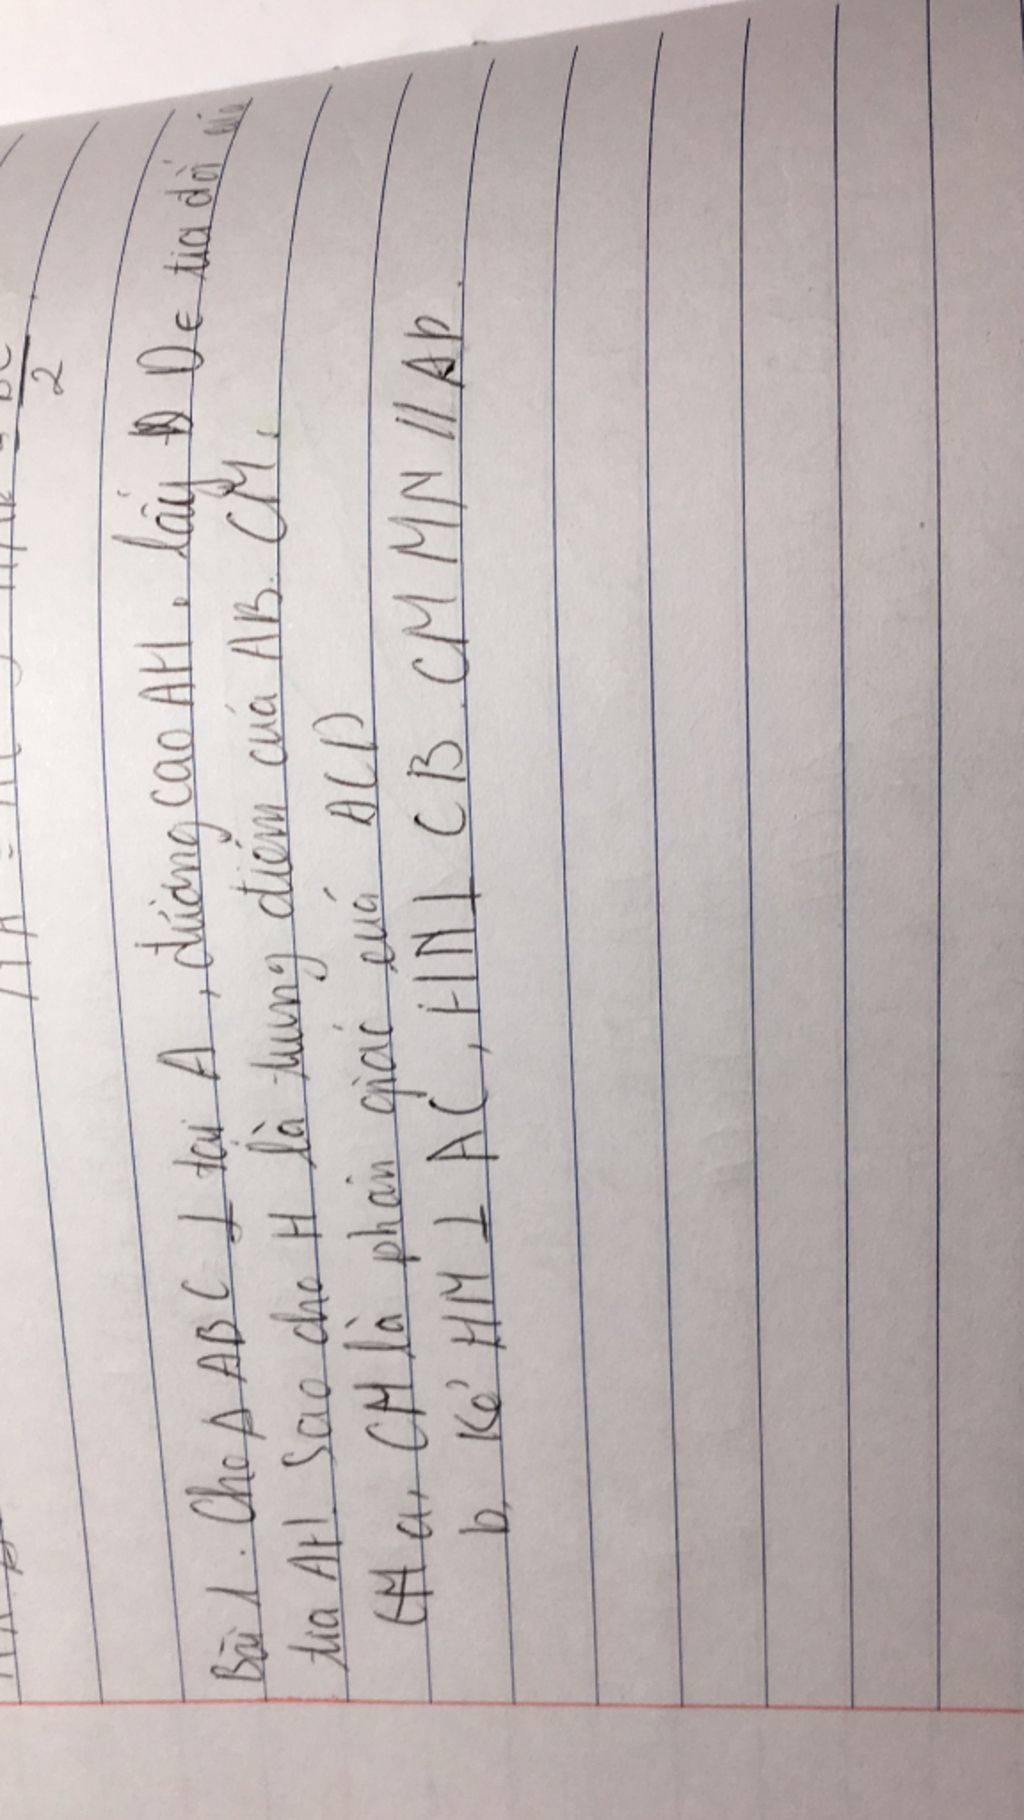 2
Bài 1. Cho Δ ABC ⊥ tại A, đường cao AH. lấy D ∈ tia đối của
tia AH. Sao cho H là trung điểm của AB. CM.
a, CH là phân giác củả ACD
b, Kẻ HM ⊥ AC, HN ⊥ CB. CM MN // AD.